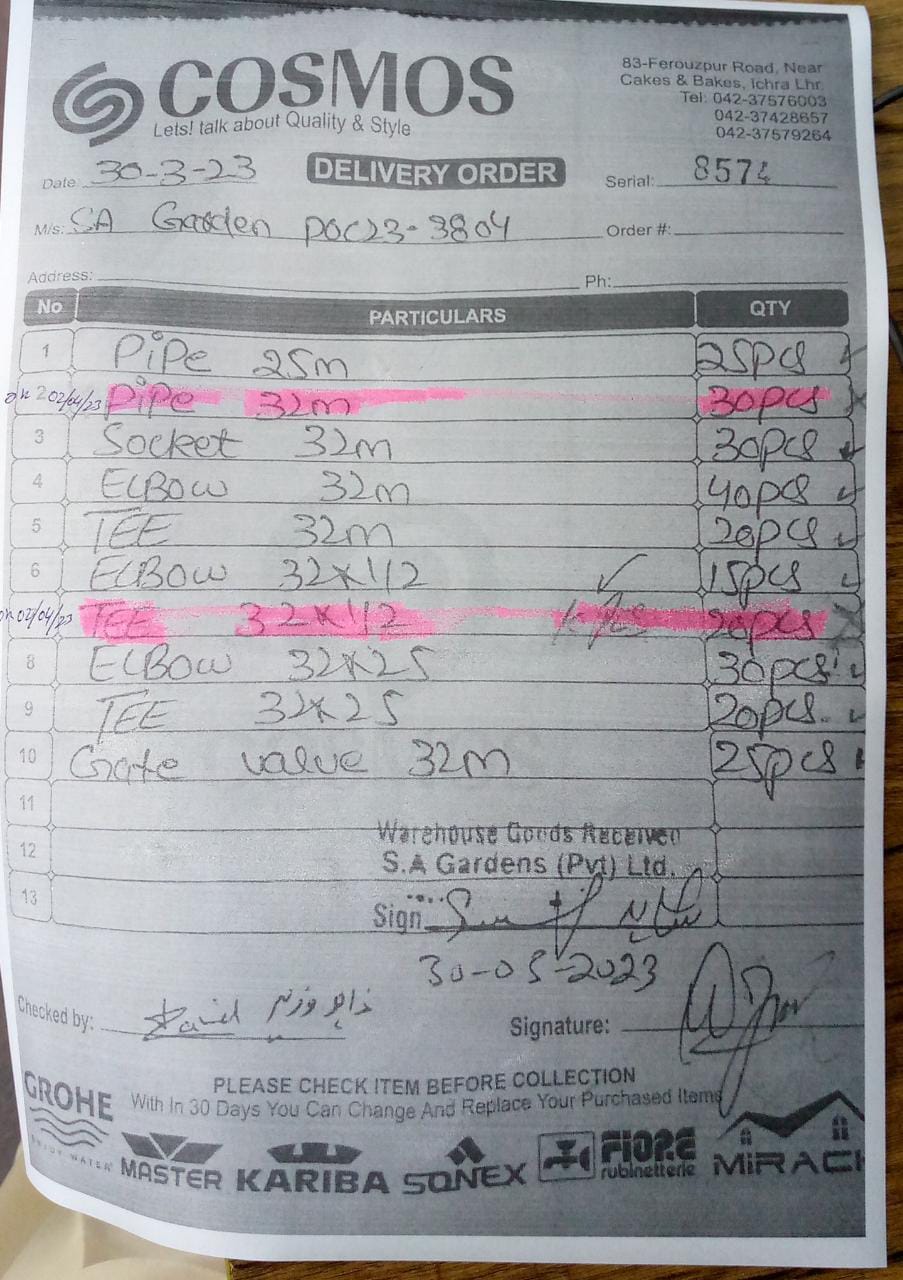 COSMOS
Lets! talk about Quality & Style
83-Ferouzpur Road, Near
Cakes & Bakes, Ichra Lhr.
Tel: 042-37576003
042-37428657
042-37579264
Date: 30-3-23 DELIVERY ORDER Serial: 8574
M/s: SA Garden POC23-3804 Order #:
Address: Ph:
No PARTICULARS QTY
1 PiPe 25m 25pcs
on 2 02/04/23 PiPe 32m 30pcs
3 Socket 32m 30pcs
4 ELBOW 32m 40pcs
5 TEE 32m 20pcs
6 ELBOW 32x1/2 15pcs
on 02/04/23 TEE 32x1/2 20pcs
8 ELBOW 32x25 30pcs
9 TEE 32x25 20pcs.
10 Gate valve 32m 25pcs
11
12
13
Warehouse Goods Received
S.A Gardens (Pvt) Ltd.
Sign
30-03-2023
Checked by:
Signature:
PLEASE CHECK ITEM BEFORE COLLECTION
With In 30 Days You Can Change And Replace Your Purchased Items
GROHE
ENJOY WATER
MASTER KARIBA SONEX FIORE rubinetterie MiRACH